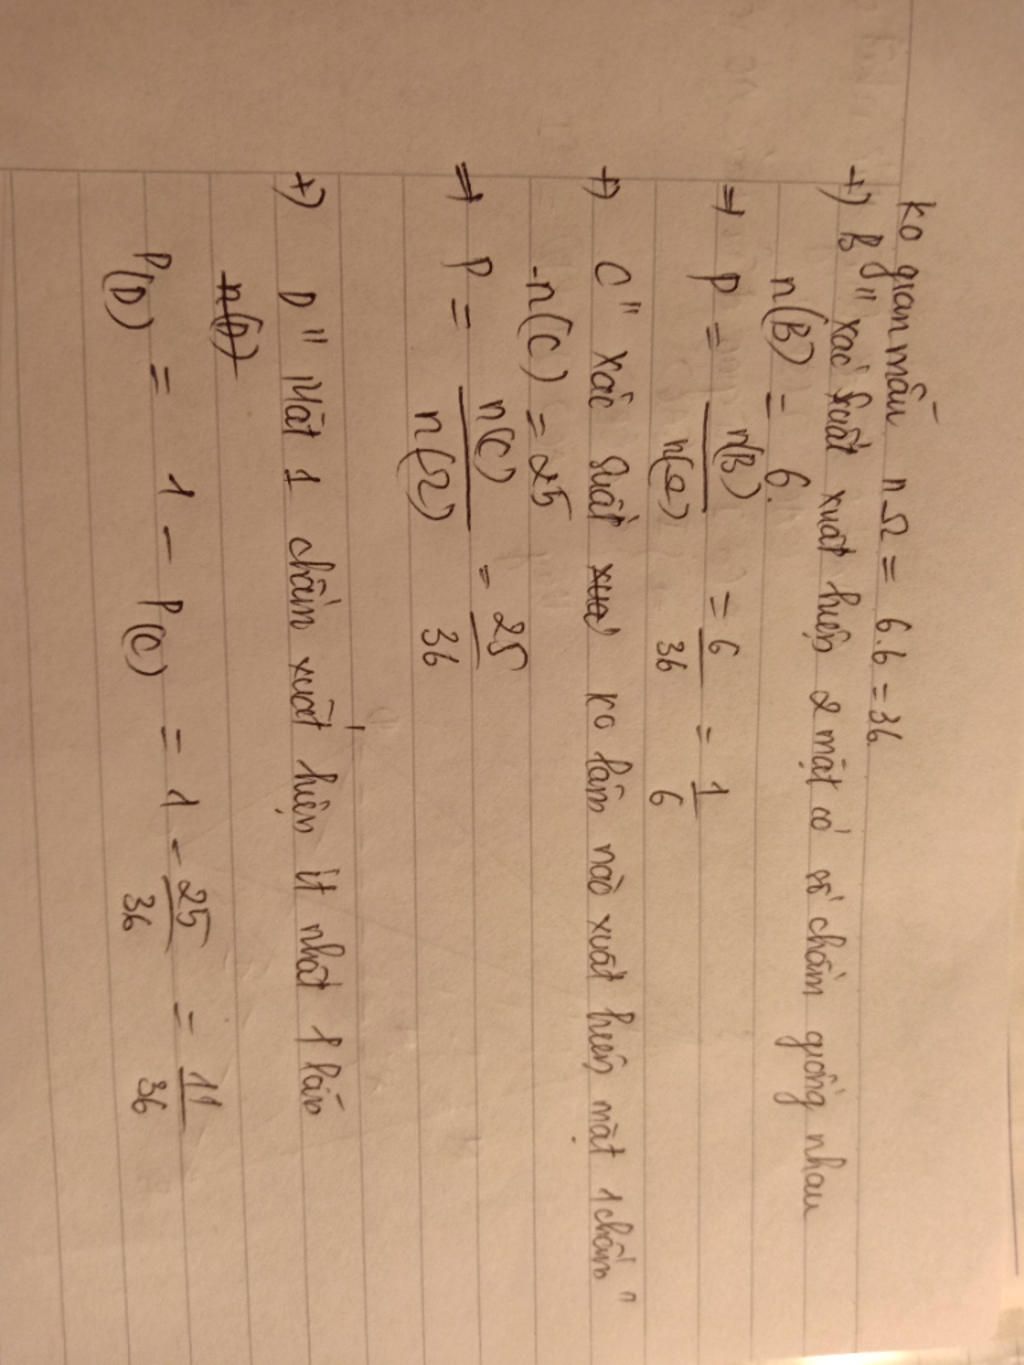 ko gian mẫu nΩ = 6.6 = 36
+) B " xác suất xuất hiện 2 mặt có số chấm giống nhau
n(B) = 6.
⇒ P = n(B)/n(Ω) = 6/36 = 1/6
+) C " xác suất xuấ ko lần nào xuất hiện mặt 1 chấm "
-n(C) = 25
⇒ P = n(C)/n(Ω) = 25/36
+) D " Mặt 1 chấm xuất hiện ít nhất 1 lần
n(D)
P(D) = 1 - P(C) = 1 - 25/36 = 11/36